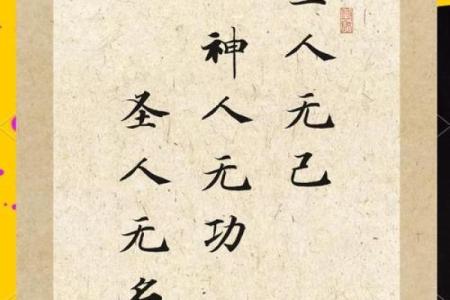 人无己
神人无功
圣人无名